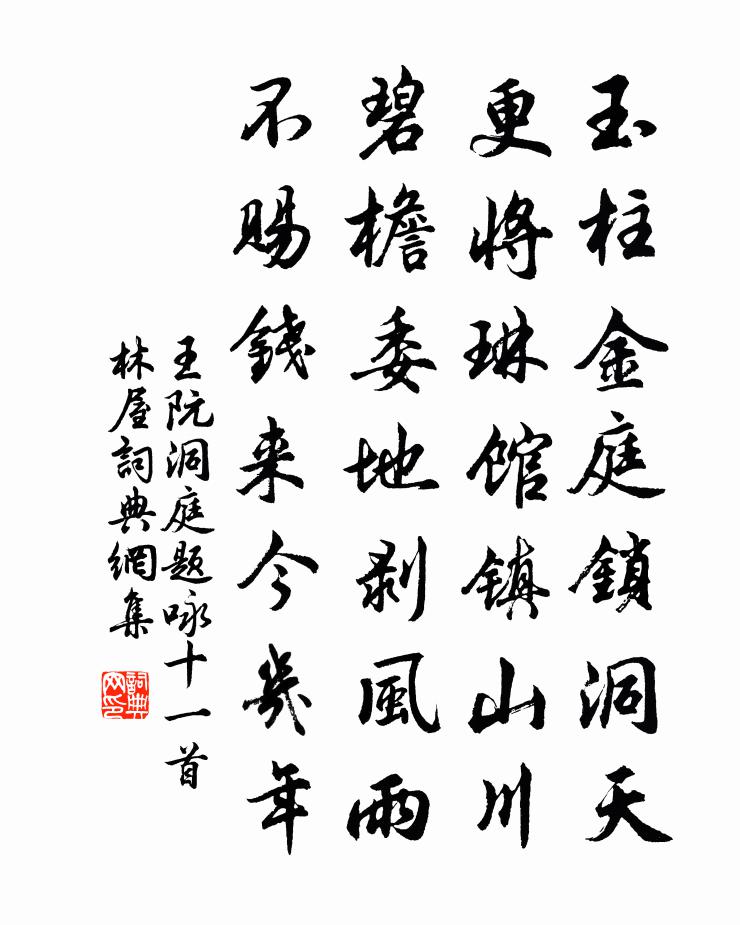 玉柱金庭鎖洞天
更將琳馆镇山川
碧檐委地剥風雨
不賜錢来今幾年
王阮洞庭题咏十一首
林屋詞典網集
詞典网印